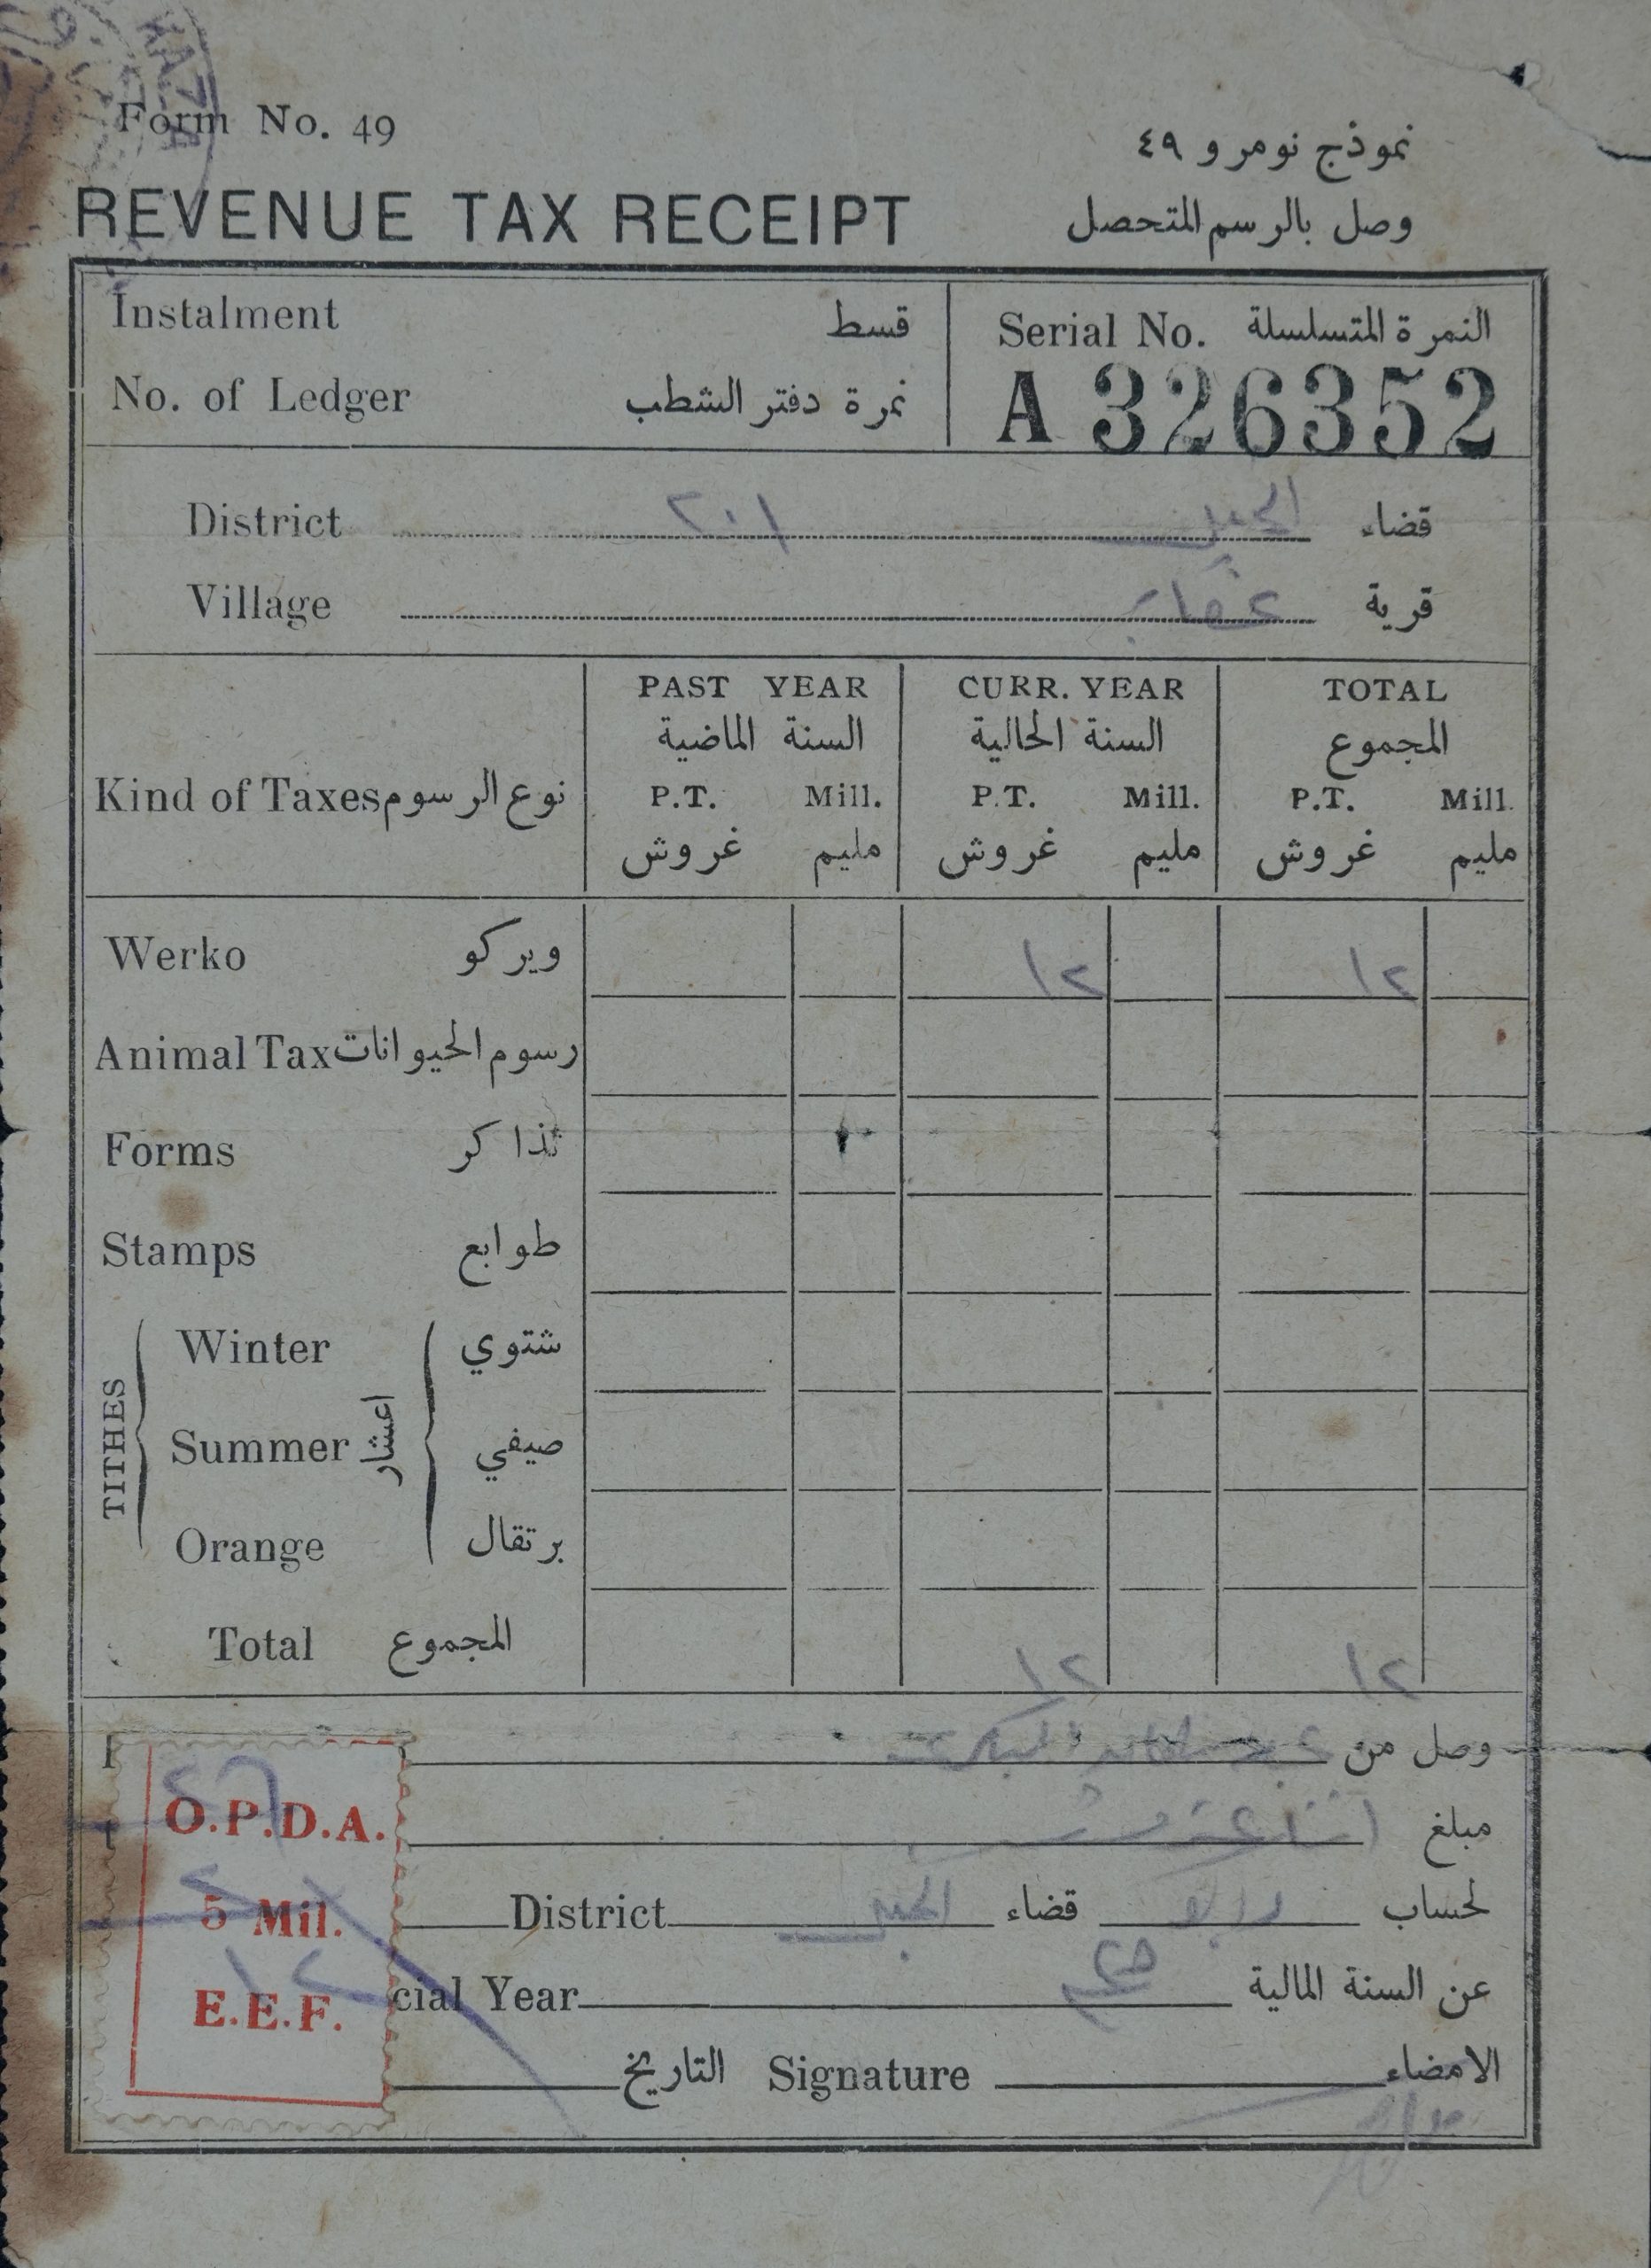 Form No. 49
نموذج نومرو ٤٩
REVENUE TAX RECEIPT
وصل بالرسم المتحصل
Instalment قسط
Serial No. النمرة المتسلسلة
No. of Ledger نمرة دفتر الشطب
A 326352
District ٢٠١ قضاء
Village قرية
PAST YEAR CURR. YEAR TOTAL
السنة الماضية السنة الحالية المجموع
Kind of Taxes نوع الرسوم
P.T. Mill. P.T. Mill. P.T. Mill.
غروش مليم غروش مليم غروش مليم
Werko ويركو ١٢ ١٢
Animal Tax رسوم الحيوانات
Forms تذاكر
Stamps طوابع
TITHES اعشار
Winter شتوي
Summer صيفي
Orange برتقال
Total المجموع ١٢ ١٢
وصل من
O.P.D.A.
مبلغ
5 Mil.
District قضاء لحساب
E.E.F.
cial Year عن السنة المالية
التاريخ Signature الامضاء